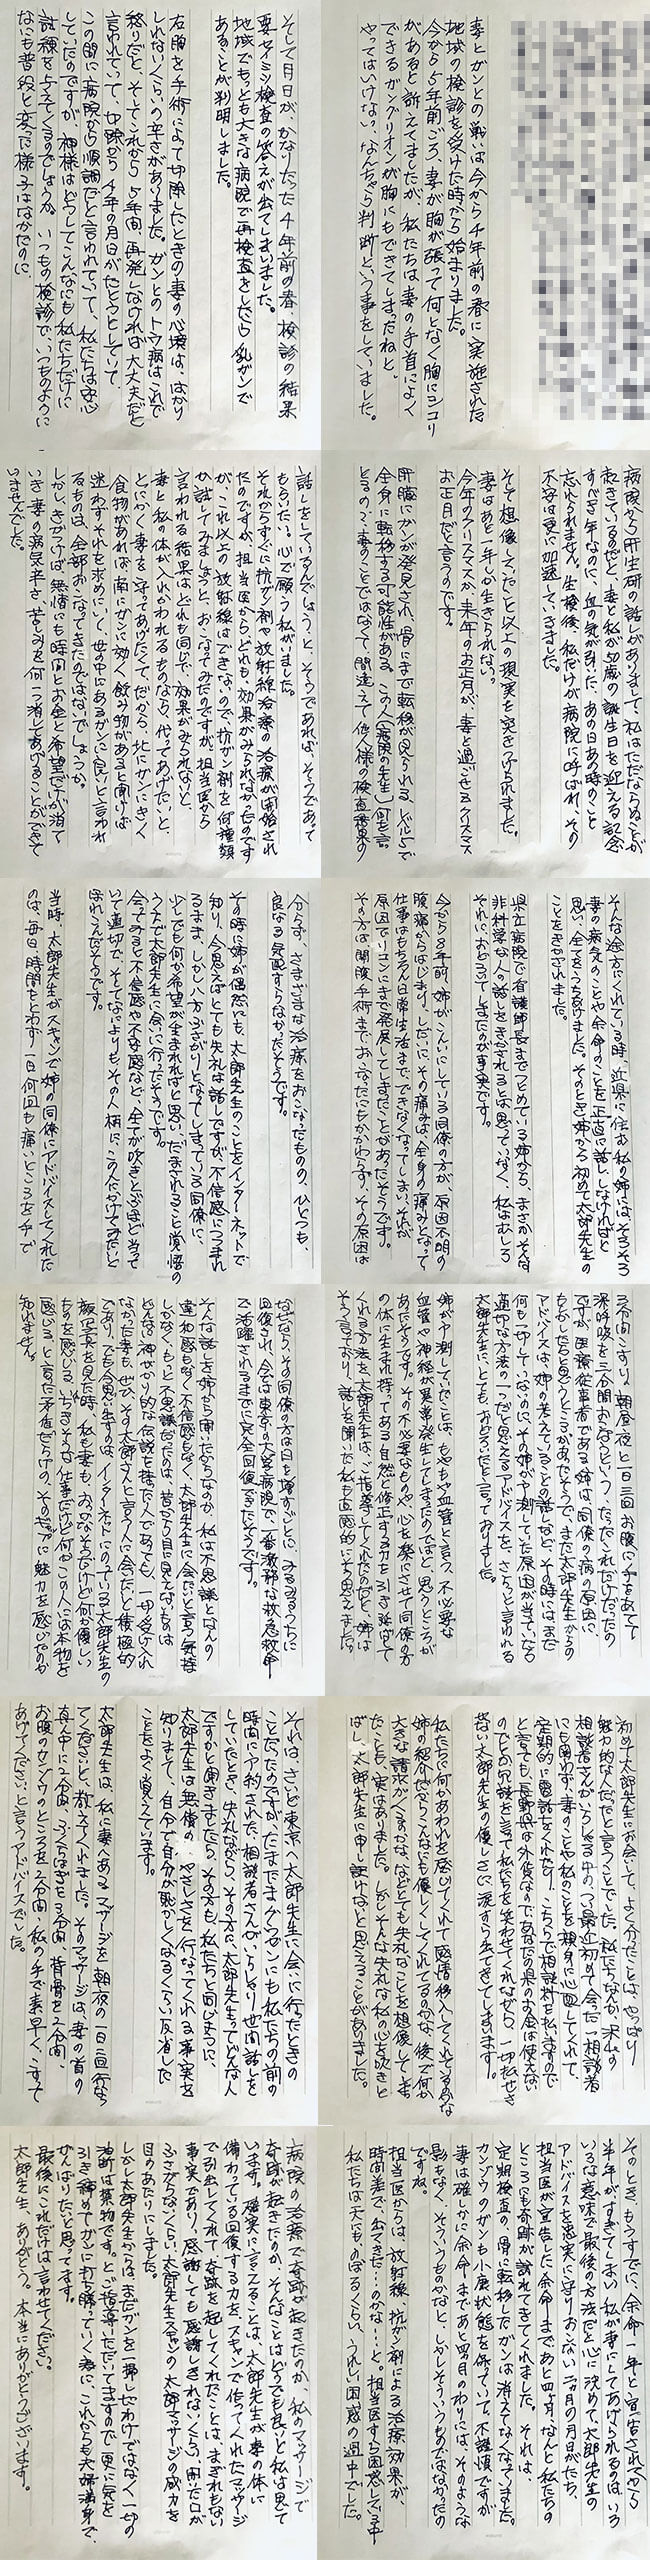 妻とガンとの戦いは今から4年前の春に実施された
地域の検診を受けた時から始まりました。
今から5年前ごろ、妻が胸が張って何となく胸にシコリ
があると訴えてましたが、私たちは妻の手首によく
できるガングリオンが胸にもできてしまったねと
やってはいけない、なんちゃら判断という事をしていました。
そして月日が、かなりたった4年前の春 検診の結果
要セイミツ検査の答えが出てしまいました。
地域でもっとも大きな病院で再検査をしたら乳ガンで
あることが判明しました。
右胸を手術によって切除したときの妻の心境は、はかり
しれないくらいの辛さがありました。ガンとのトウ病はこれで
終りだと、そしてこれから5年間 再発しなければ大丈夫だと
言われていて、切除から4年の月日がたとうとしていて、
この間に病院から順調だと言われていて、私たちは安心
していたのですが、神様はどうしてこんなにも私たちだけに
試練を与えてくるのでしょうか。いつもの検診で、いつものように
なにも普段と変った様子はなかったのに、
病院から肝生研の話しがありまして、私はただならぬことが
起きているのだと、妻と私が50歳の誕生日を迎える記念
すべき年なのに、血の気が引いた、あの日あの時のこと
忘れられません。生検後、私だけが病院に呼ばれ、その
不安は更に加速していきました。
そして想像していたこと以上の現実を突きつけられました。
妻はあと一年しか生きられない。
今年のクリスマスが、来年のお正月が、妻と過ごせるクリスマス
お正月だと言うのです。
肝臓にガンが発見され、骨にまで転移が見られる、
全身に転移する可能性がある。この人(病院の先生)何を言っ
とるの?、妻のことではなくて、間違えて他人様の検査結果の
話しをしているんでしょうと、そうであれば、そうであって
もらいたい、心で願う私がいました。
それからすぐに抗がン剤や放射線治療の治療が開始され
たのですが、担当医からどれも、効果がみられなかったのです
が、これ以上の放射線はできないので抗ガン剤を何種類
か試してみましょうと、おこなってみたのですが、担当医から
言われる結果はどれも同じで、効果がみられないと、
妻と私の体が入れかわれるものなら、代ってあげたいと、
とにかく妻を守ってあげたくて、だから、北にガンにきく
食物があれば、南にガンに効く飲み物があると聞けば
迷わずそれを求めにいて、世の中にあるガンに良いと言われ
るものは、全部おこなってきたのではないでしょうか。
しかし、きがつけば、無情にも時間とお金と希望だけが消えて
いき妻の病気辛さ、苦しみを何一つ消してあげることができて
いませんでした。
そんな途方にくれている時、近県に住む私の姉には、そろそろ
妻の病気のことや余命のことを正直に話ししなければと
思い、全てをうちあけました。そのとき姉から初めて太郎先生の
ことをきかされました。
県立病院で看護師長までつとめている姉から、まさかそんな
非科学な人の話しをきかされるとは思っていなく、私はむしろ
それに、おどろいてしまったのが事実です。
今から8年前、姉がこんいにしている同僚の方が、原因不明の
腹痛からはじまり、しだいに、その痛みは、全身の痛みとなって
仕事はもちろん日常生活まで、できなくなってしまい、それが
原因でリコンにまで発展してしまったことがあったそうです。
その方は開腹手術までおこなったにもかかわらず、その原因は
分らず、さまざまな治療をおこなったものの、ひとつも、
良なる気配すらなかったそうです。
その時に姉が偶然にも、太郎先生のことをインターネットで
知り、今思えばとても失礼な話しですが、不信感につつまれ
るまま、しかし八方ふさがりとなってしまっている同僚に、
少しでも何か希望が生まれればと思い、だまされること覚悟の
うえで太郎先生に会いに行ったそうです。
会ってみると不信感や不安感など、全てが吹きとぶほど当って
いて適切で、そしてなによりもその人柄に、この人にかけてみたいと
ほれこんだそうです。
当時、太郎先生がスキャンで姉の同僚にアドバイスしてくれた
のは、毎日、時間もとわず、一日何回も痛いところを手で
3分間こすり、朝昼夜と一日三回お腹に手をあてて
深呼吸を三分間おこなうという、たったこれだけだったの
ですが、医療従事者である姉は、同僚の病の原因に、
もしかしたらと思うところがあったそうで、また太郎先生からの
アドバイスは、姉の考えていることの話しなど、その時にはまだ
何も一切していないのに、その姉が予測していた原因が当っている
適切な方法の一つだと思えるアドバイスを、さらっと言われる
太郎先生に、とても、おどろいたと言っておりました。
姉が予測していたことは、もやもや血管と言う、不必要な
血管や神経が異常発生してしまったのではと思うところが
あったそうです。その不必要なものや、心を楽にさせて同僚の方
の体に生まれ持ってある自然と修正する力を引き延ばして
くれる方法を、太郎先生は、ご指導してくれたのだと、姉は
そう言っており、話しを聞いた私も直感的にそう思えました。
なぜなら、その同僚の方は日を増すごとに、みるみるうちに
回復され、今は東京の大学病院で、一番激務な救急救命
で活躍されるまでに完全回復できたそうです。
そんな話しを姉から聞いたからなのか、私は不思議となんの
違和感もなく不信感もなく、太郎先生に会いたいと言う気持
しかなく、もっと不思議だったのは、昔から目に見えないものは
どんなに神がかり的な伝説を持った人であっても、一切受け入れ
なかった妻も、ぜひ、その太郎さんと言う人に会いたいと積極的
であり、でも今思い出すのは、インターネットにのっている太郎先生の
顔写真を見た時、私も妻も、おっかなそうだけど何か優しい
ものを感じる、いちきそうな仕事だけど何かこの人には本物を
感じる、と言った矛盾だらけの、そのギャップに魅力を感じたのかも
知れません。
初めて太郎先生にお会いして、よく分ったことは、やっぱり
魅力的な人だったと言うことでした。私たちなんか、沢山の
相談者さんがいらっしゃる中の、つい最近初めて会った一相談者
にも関わず、妻のことや私のことを親身に心配してくれて、
定期的に電話をくれたり、こちらで相談料を払いますので
と言っても、長野県は外貨なので、あなたの県のお金は使えない
のでとか冗談を言って私たちを笑わせてくれながら、一切払せさ
せない太郎先生の優しさに、涙すら出てきてしまいます。
私たちに何かあわれを感じてくれて感情移入してくれているのかな
姉の紹介だからこんなにも優しくしてくれてるのかな、後で何か
大きな請求がくるのかな、などとても失礼なことを想像してしまっ
たことも、実はありました。しかしそんな失礼な私の心を吹きと
ばし、太郎先生に申し訳けないと思えることがありました。
それは、さいど東京へ太郎先生に会いに行ったときの
ことだったのですが、たまたまグウゼンにも私たちの前の
時間に予約された、相談者さんがいらしゃり、世間話しを
していたとき、失礼ながら、その方に、太郎先生ってどんな人
ですかと聞きましたら、その方も、私たちと同じように、
太郎先生は無償の やさしさを行なってくれる事実を
知りまして、自分で自分が恥かしくなるくらい反省した
ことをよく覚えています。
太郎先生は、私に妻へある、マッサージを、朝夜の一日二回行なっ
てくださいと、教えてくれました。そのマッサージは、妻の首の
真ん中に2分間、ふくらはぎを3分間、背骨を2分間、
お腹のカンゾウのところを2分間、私の手で素早く、こすって
あげてください、と言うアドバイスでした。
そのとき、もうすでに、余命一年と宣告されてから
半年がすぎてしまい、私が妻にしてあげられるのは、いろ
いろな意味で最後の方法だと心に決めて、太郎先生の
アドバイスを忠実に守りおこない、二ヶ月の月日がたち、
担当医が宣告した余命まであと四ヶ月、なんと私たちの
ところにも奇跡が訪れてきてくれました。それは、
定期検査の、骨に転移したガンは消えてなくなっていました。
カンゾウのガンも小康状態を保っていて、不謹慎ですが
妻は確しかに余命まであと四ヶ月のわりには、そのような
影もなく、そういうものかなと、しかしそういうものではなかったの
ですね。
担当医からは、放射線、抗ガン剤による治療効果が、
時間差で、出てきた…のかな…と。担当医すら困惑している中
私たちは天にも、のぼるくらい、うれしい困惑の過中でした。
病院の治療で奇跡が起きたのか、私のマッサージで
奇跡が起きたのか、そんなことはどうでも良いと私は思って
います。確実に言えることは、太郎先生が妻の体に
備わっている回復する力を、スキャンで作ってくれたマッサージ
で引出してくれて奇跡を起してくれたことは、まぎれもない
事実であり、感謝しても感謝しきれないくらい、開いた口が
ふさがらないくらい、太郎先生スキャンの太郎マッサージの威力を
目のあたりにしました。
しかし太郎先生からは、まだガンを一掃したわけではなく一切の
油断は禁物です。とご指導いただいてますので、更に気を
引き締めてガンに打ち勝っていく為に、これからも夫婦満身で、
がんばりたいと思ってます。
最後にこれだけは言わせてください。
太郎先生、ありがとう。本当にありがとうございます。